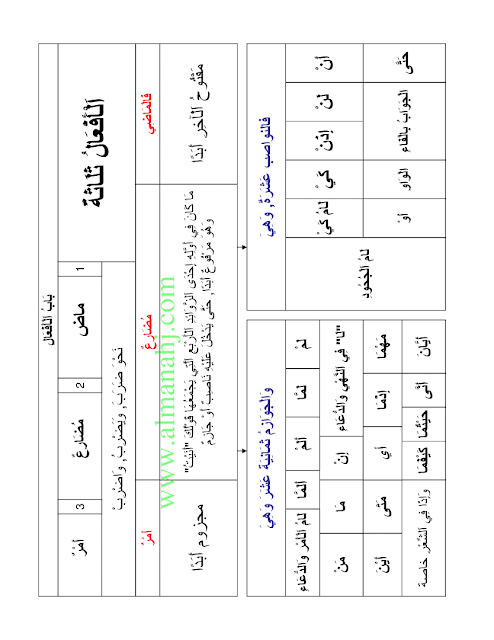 بَابُ الْأَفْعَالِ
الْأَفْعَالُ ثَلَاثَة
1
مَاضٍ
2
مُضَارِعٌ
3
أَمْرٌ
نَحْوَ ضَرَبَ, وَيَضْرِبُ, وَاضْرِبْ
فَالْمَاضِي
مَفْتُوحُ الْآخِرِ أَبَدًا
مُضَارِعٌ
مَا كَانَ فِي أَوَّلِهِ إِحْدَى الزَّوَائِدِ الْأَرْبَعِ الَّتِي يَجْمَعُهَا قَوْلُكَ "أَنَيْتَ"
وَهُوَ مَرْفُوعٌ أَبَدًا, حَتَّى يَدْخُلَ عَلَيْهِ نَاصِبٌ أَوْ جَازِمٌ
أَمْرٌ
مَجْزُومٌ أَبَدًا
www.almanahj.com
فَالنَّوَاصِبُ عَشَرَةٌ, وَهِيَ
أَنْ
لَنْ
إِذَنْ
كَيْ
لَامُ كَيْ
لَامُ الْجُحُودِ
حَتَّى
الْجَوَابُ بِالْفَاءِ
الْوَاوِ
أَوْ
وَالْجَوَازِمُ ثَمَانِيَةَ عَشَرَ وَهِيَ
لَمْ
لَمَّا
أَلَمْ
أَلَمَّا
لَامُ الْأَمْرِ وَالدُّعَاءِ
"لَا" فِي النَّهْيِ وَالدُّعَاءِ
إِنْ
مَا
مَنْ
مَهْمَا
إِذْمَا
أَي
مَتَى
أَيْنَ
أَيَّانَ
أَنَّى
حَيْثُمَا
كَيْفَمَا
وَإِذَا فِي الشِّعْرِ خَاصَّة